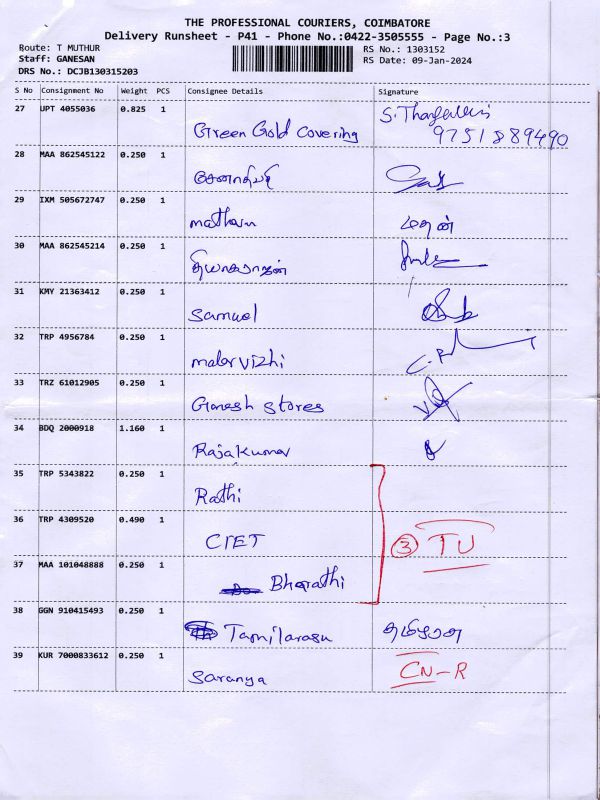 THE PROFESSIONAL COURIERS, COIMBATORE
Delivery Runsheet - P41 - Phone No.:0422-3505555 - Page No.:3
Route: T MUTHUR
RS No.: 1303152
Staff: GANESAN
RS Date: 09-Jan-2024
DRS No.: DCJB130315203
S No Consignment No Weight PCS Consignee Details Signature
27 UPT 4055036 0.825 1
Green Gold Covering
9751889490
28 MAA 862545122 0.250 1
29 IXM 505672747 0.250 1
மதன்
30 MAA 862545214 0.250 1
தியாகராஜன்
31 KMY 21363412 0.250 1
Samuel
32 TRP 4956784 0.250 1
malar vizhi
33 TRZ 61012905 0.250 1
Ganesh Stores
34 BDQ 2000918 1.160 1
Rajakumar
35 TRP 5343822 0.250 1
Rathi
36 TRP 4309520 0.490 1
CIET 3 TU
37 MAA 101048888 0.250 1
Bharathi
38 GGN 910415493 0.250 1
Tamilarasu
39 KUR 7000833612 0.250 1
Saranya CN-R